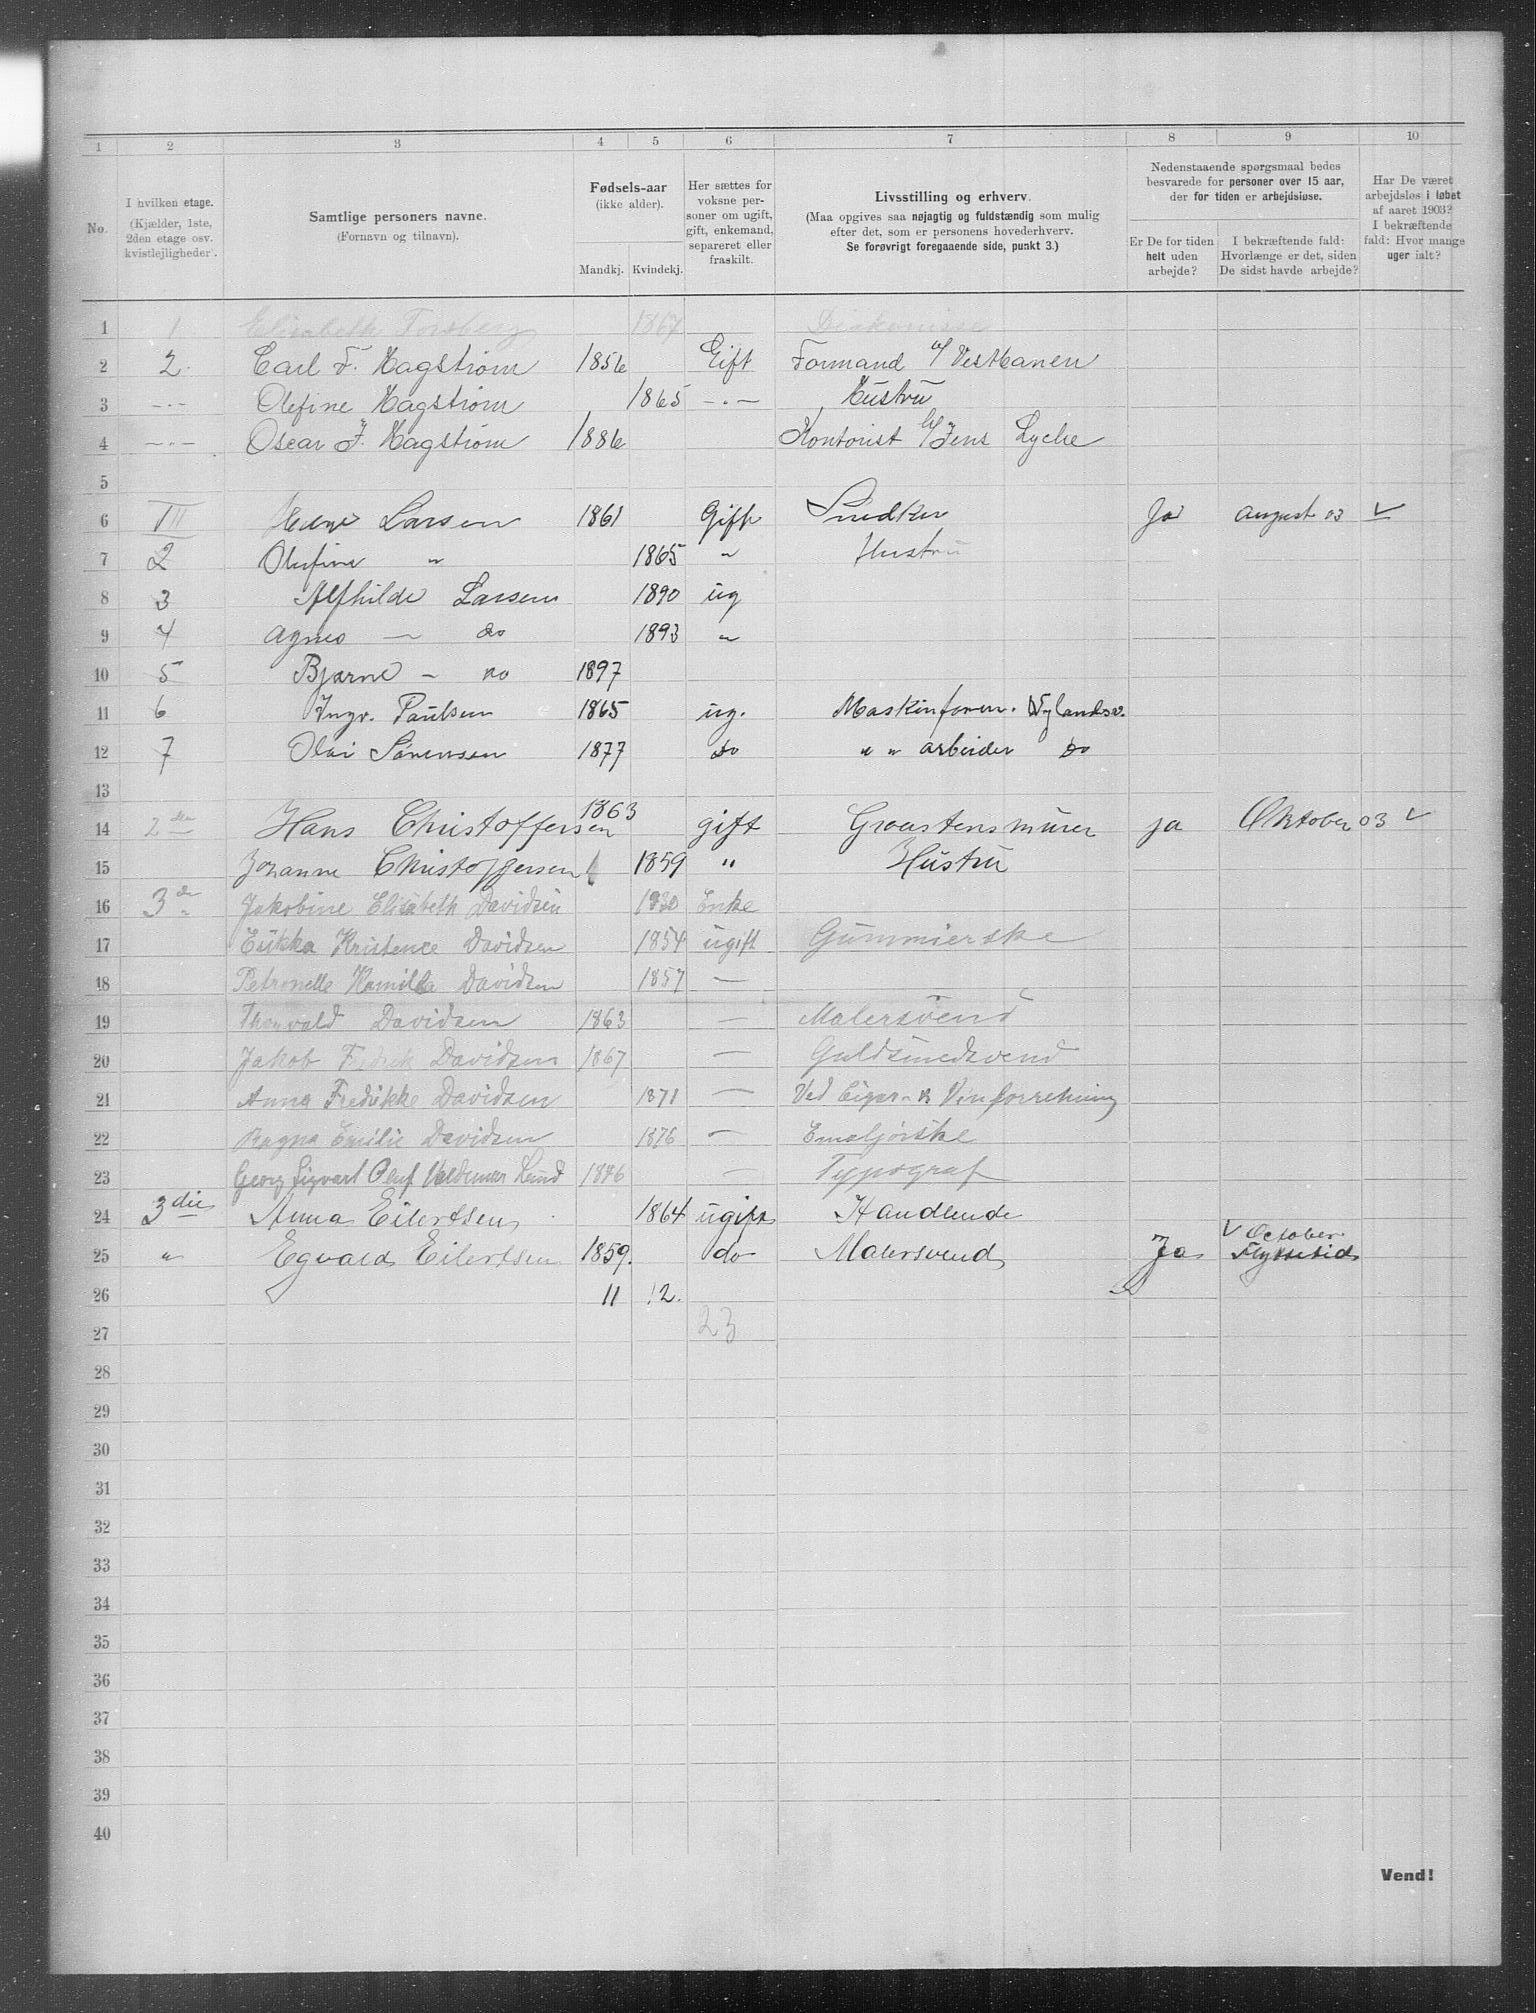 1 2 3 4 5 6 7 8 9 10
No.
I hvilken etage.
(Kjælder, 1ste,
2den etage osv.
kvistlejligheder.
Samtlige personers navne.
(Fornavn og tilnavn).
Fødsels-aar
(ikke alder).
Mandkj. Kvindekj.
Her sættes for
voksne per-
soner om ugift,
gift, enkemand,
separeret eller
fraskilt.
Livsstilling og erhverv.
(Maa opgives saa nøjagtig og fuldstændig som mulig
efter det, som er personens hovederhverv.
Se forøvrigt foregaaende side, punkt 3.)
Nedenstaaende spørgsmaal bedes
besvarede for personer over 15 aar,
der for tiden er arbejdsløse.
Er De for tiden
helt uden
arbejde?
I bekræftende fald:
Hvorlænge er det, siden
De sidst havde arbejde?
Har De været
arbejdsløs i løbet
af aaret 1903?
I bekræftende
fald: Hvor mange
uger ialt?
1 1 Elisabeth Forsberg 1867 Diakonisse
2 2. Carl F. Hagstrøm 1856 Gift Formand v/ Vestbanen
3 -"- Olefine Hagstrøm 1865 -"- Hustru
4 -"- Oscar F. Hagstrøm 1886 Kontorist b/ Jens Lyche
5
6 III Larsen 1861 Gift Snedker Ja august 03 ✓
7 2 Olufine " 1865 " Hustru
8 3 Alfhilde Larsen 1890 ug
9 4 Agnes — do 1893 "
10 5 Bjarne - do 1897
11 6 Ingv. Paulsen 1865 ug. Maskinform. Nylandsv.
12 7 Olai Sørensen 1877 do " " arbeider do
13
14 2den Hans Christoffersen 1863 gift Graastensmurer ja Oktober 03 ✓
15 Johanne Christoffersen 1859 " Hustru
16 3de Jakobine Elisabeth Davidsen 1830 Enke
17 Kristence Davidsen 1854 ugift Gummierske
18 Petronelle Kamilla Davidsen 1857 —
19 Thorvald Davidsen 1863 — Malersvend
20 Jakob Fredrik Davidsen 1867 — Guldsmedsvend
21 Anna Fredrikke Davidsen 1871 — Ved Cigar- & Vinforretning
22 Ragna Emilie Davidsen 1876 — Emaljørske
23 Georg Sigvart Oluf Valdemar Lund 1876 — Typograf
24 3die Anna Eilertsen 1864 ugift Handlende
25 " Egvald Eilertsen 1859. do Malersvend Ja ✓ October Flyttetid
26 11 12.
27 23
28
29
30
31
32
33
34
35
36
37
38
39
40
Vend!